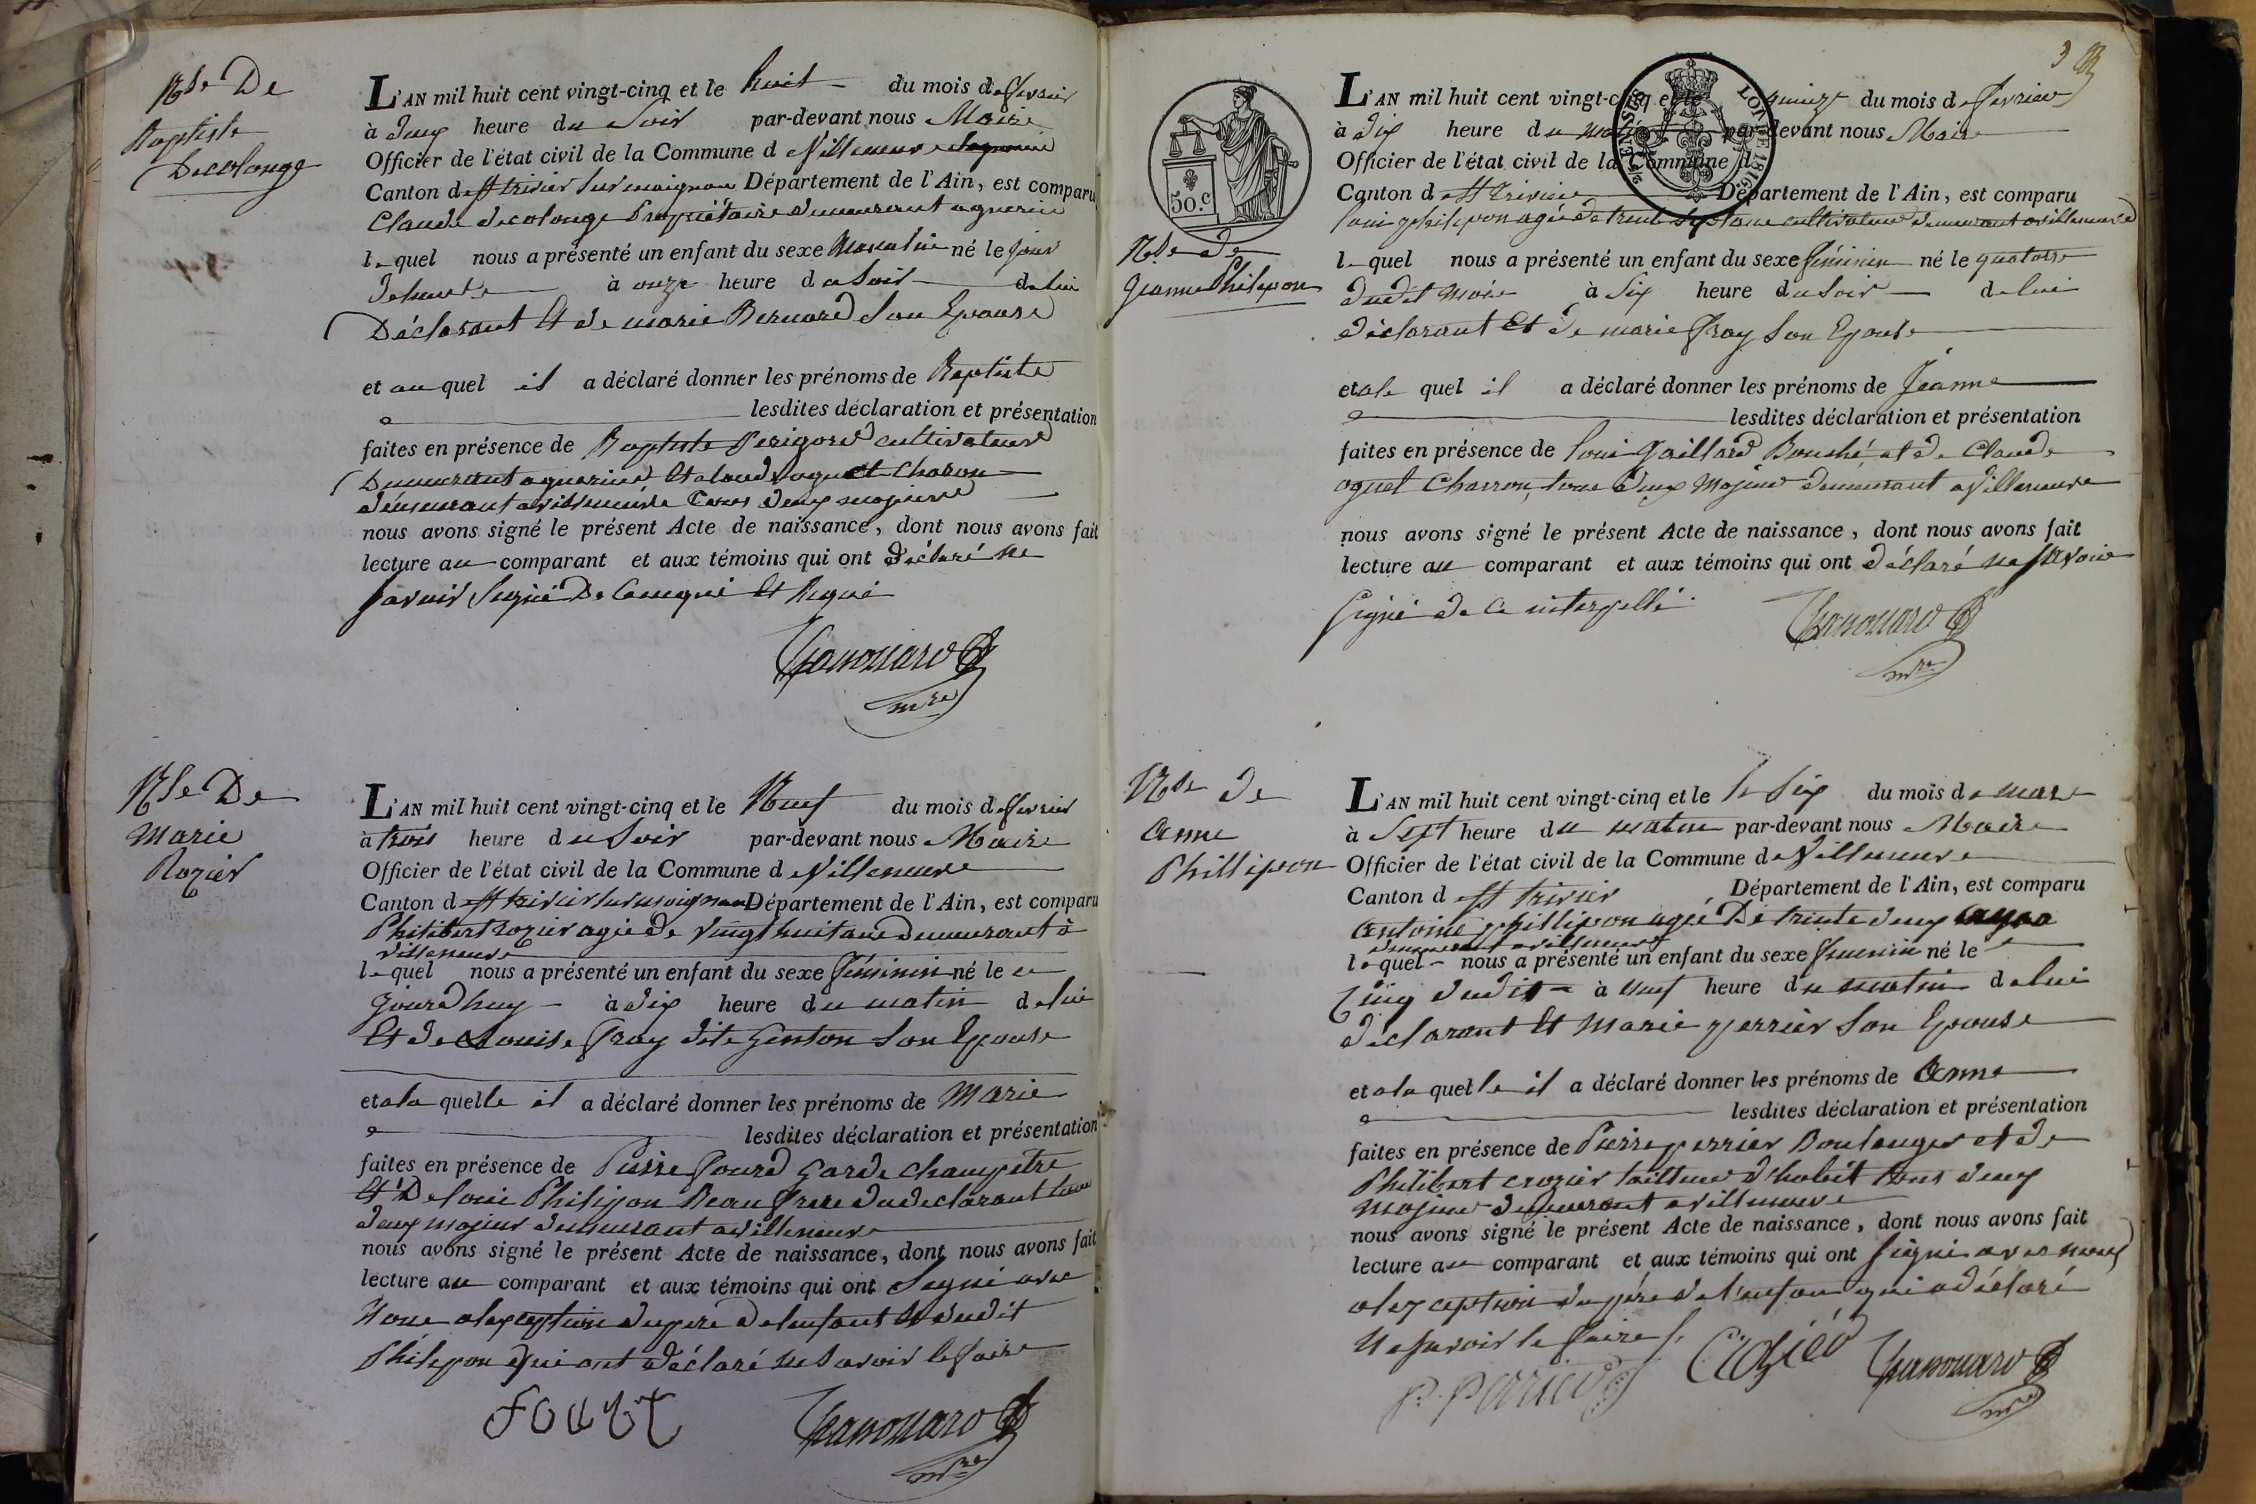 Nce De
Baptiste
Decolonge
L'AN mil huit cent vingt-cinq et le huit du mois de fevrier
à deux heure du Soir par-devant nous Maire
Officier de l'état civil de la Commune de Villeneuve
Canton de St trivier sur moignan Département de l'Ain, est comparu
Claude decolonge Propriétaire demeurant a
le quel nous a présenté un enfant du sexe Masculin né le jour
à onze heure du Soir de lui
Déclarant et de marie Bernard Son Epouse
et au quel il a déclaré donner les prénoms de Baptiste
lesdites déclaration et présentation
faites en présence de Baptiste Perigord cultivateur
Demeurant a et Charon
demeurant a villeneuve tous deux majeurs
nous avons signé le présent Acte de naissance, dont nous avons fait
lecture au comparant et aux témoins qui ont déclaré ne
savoir Signé De Ce enquis et Requi
mre
Nce De
Marie
Rozier
L'AN mil huit cent vingt-cinq et le Neuf du mois de fevrier
à trois heure du Soir par-devant nous Maire
Officier de l'état civil de la Commune de Villeneuve
Canton de St trivier sur moignan Département de l'Ain, est comparu
Philibert rozier agé de vingt huit ans demeurant à
villeneuve
le quel nous a présenté un enfant du sexe féminin né le ce
jourdhuy à dix heure du matin de lui
Et de Louise fray dite genton Son Epouse
et a la quelle il a déclaré donner les prénoms de Marie
lesdites déclaration et présentation
faites en présence de Pierre fourd garde champetre
Et De loui Philipon Beau frere du declarant tous
deux majeur demeurant a villeneuve
nous avons signé le présent Acte de naissance, dont nous avons fait
lecture au comparant et aux témoins qui ont Signé avec
Nous a lexception du pere de lenfant et dudit
Philipon qui ont déclaré ne Savoir le faire
mre
3
50.C
LOI DE 1816
Nce de
Jeanne Philipon
L'AN mil huit cent vingt-cinq et le quinze du mois de fevrier
à dix heure du matin par-devant nous Maire
Officier de l'état civil de la Commune d
Canton de St trivier Département de l'Ain, est comparu
loui philipon agé de trente sept ans cultivateur demeurant a villeneuve
le quel nous a présenté un enfant du sexe féminin né le quatorse
dudit mois à Six heure du soir de lui
déclarant et de marie fray Son Epouse
et a le quel il a déclaré donner les prénoms de Jeanne
lesdites déclaration et présentation
faites en présence de loui gaillard Bouché et de Claude
oguet Charron, tous deux Majeur demeurant a Villeneuve
nous avons signé le présent Acte de naissance, dont nous avons fait
lecture au comparant et aux témoins qui ont déclaré ne savoir
signé de ce interpellé
mre
Nce de
anne
Phillipon
L'AN mil huit cent vingt-cinq et le le Six du mois de mars
à Sept heure du matin par-devant nous Maire
Officier de l'état civil de la Commune de Villeneuve
Canton de St trivier Département de l'Ain, est comparu
antoine phillipon agé De trente deux
demeurant a villeneuve
le quel nous a présenté un enfant du sexe feminin né le
Cinq dudit à neuf heure du matin de lui
declarant et Marie perrier Son Epouse
et a la quelle il a déclaré donner les prénoms de anne
lesdites déclaration et présentation
faites en présence de Pierre perrier Boulanger et de
Philibert crozier tailleur d'habit tous deux
majeur demeurant a villeneuve
nous avons signé le présent Acte de naissance, dont nous avons fait
lecture au comparant et aux témoins qui ont signé avec nous
a lexception du père de l'enfan qui a déclaré
Ne savoir le faire
P. Perrier
mre